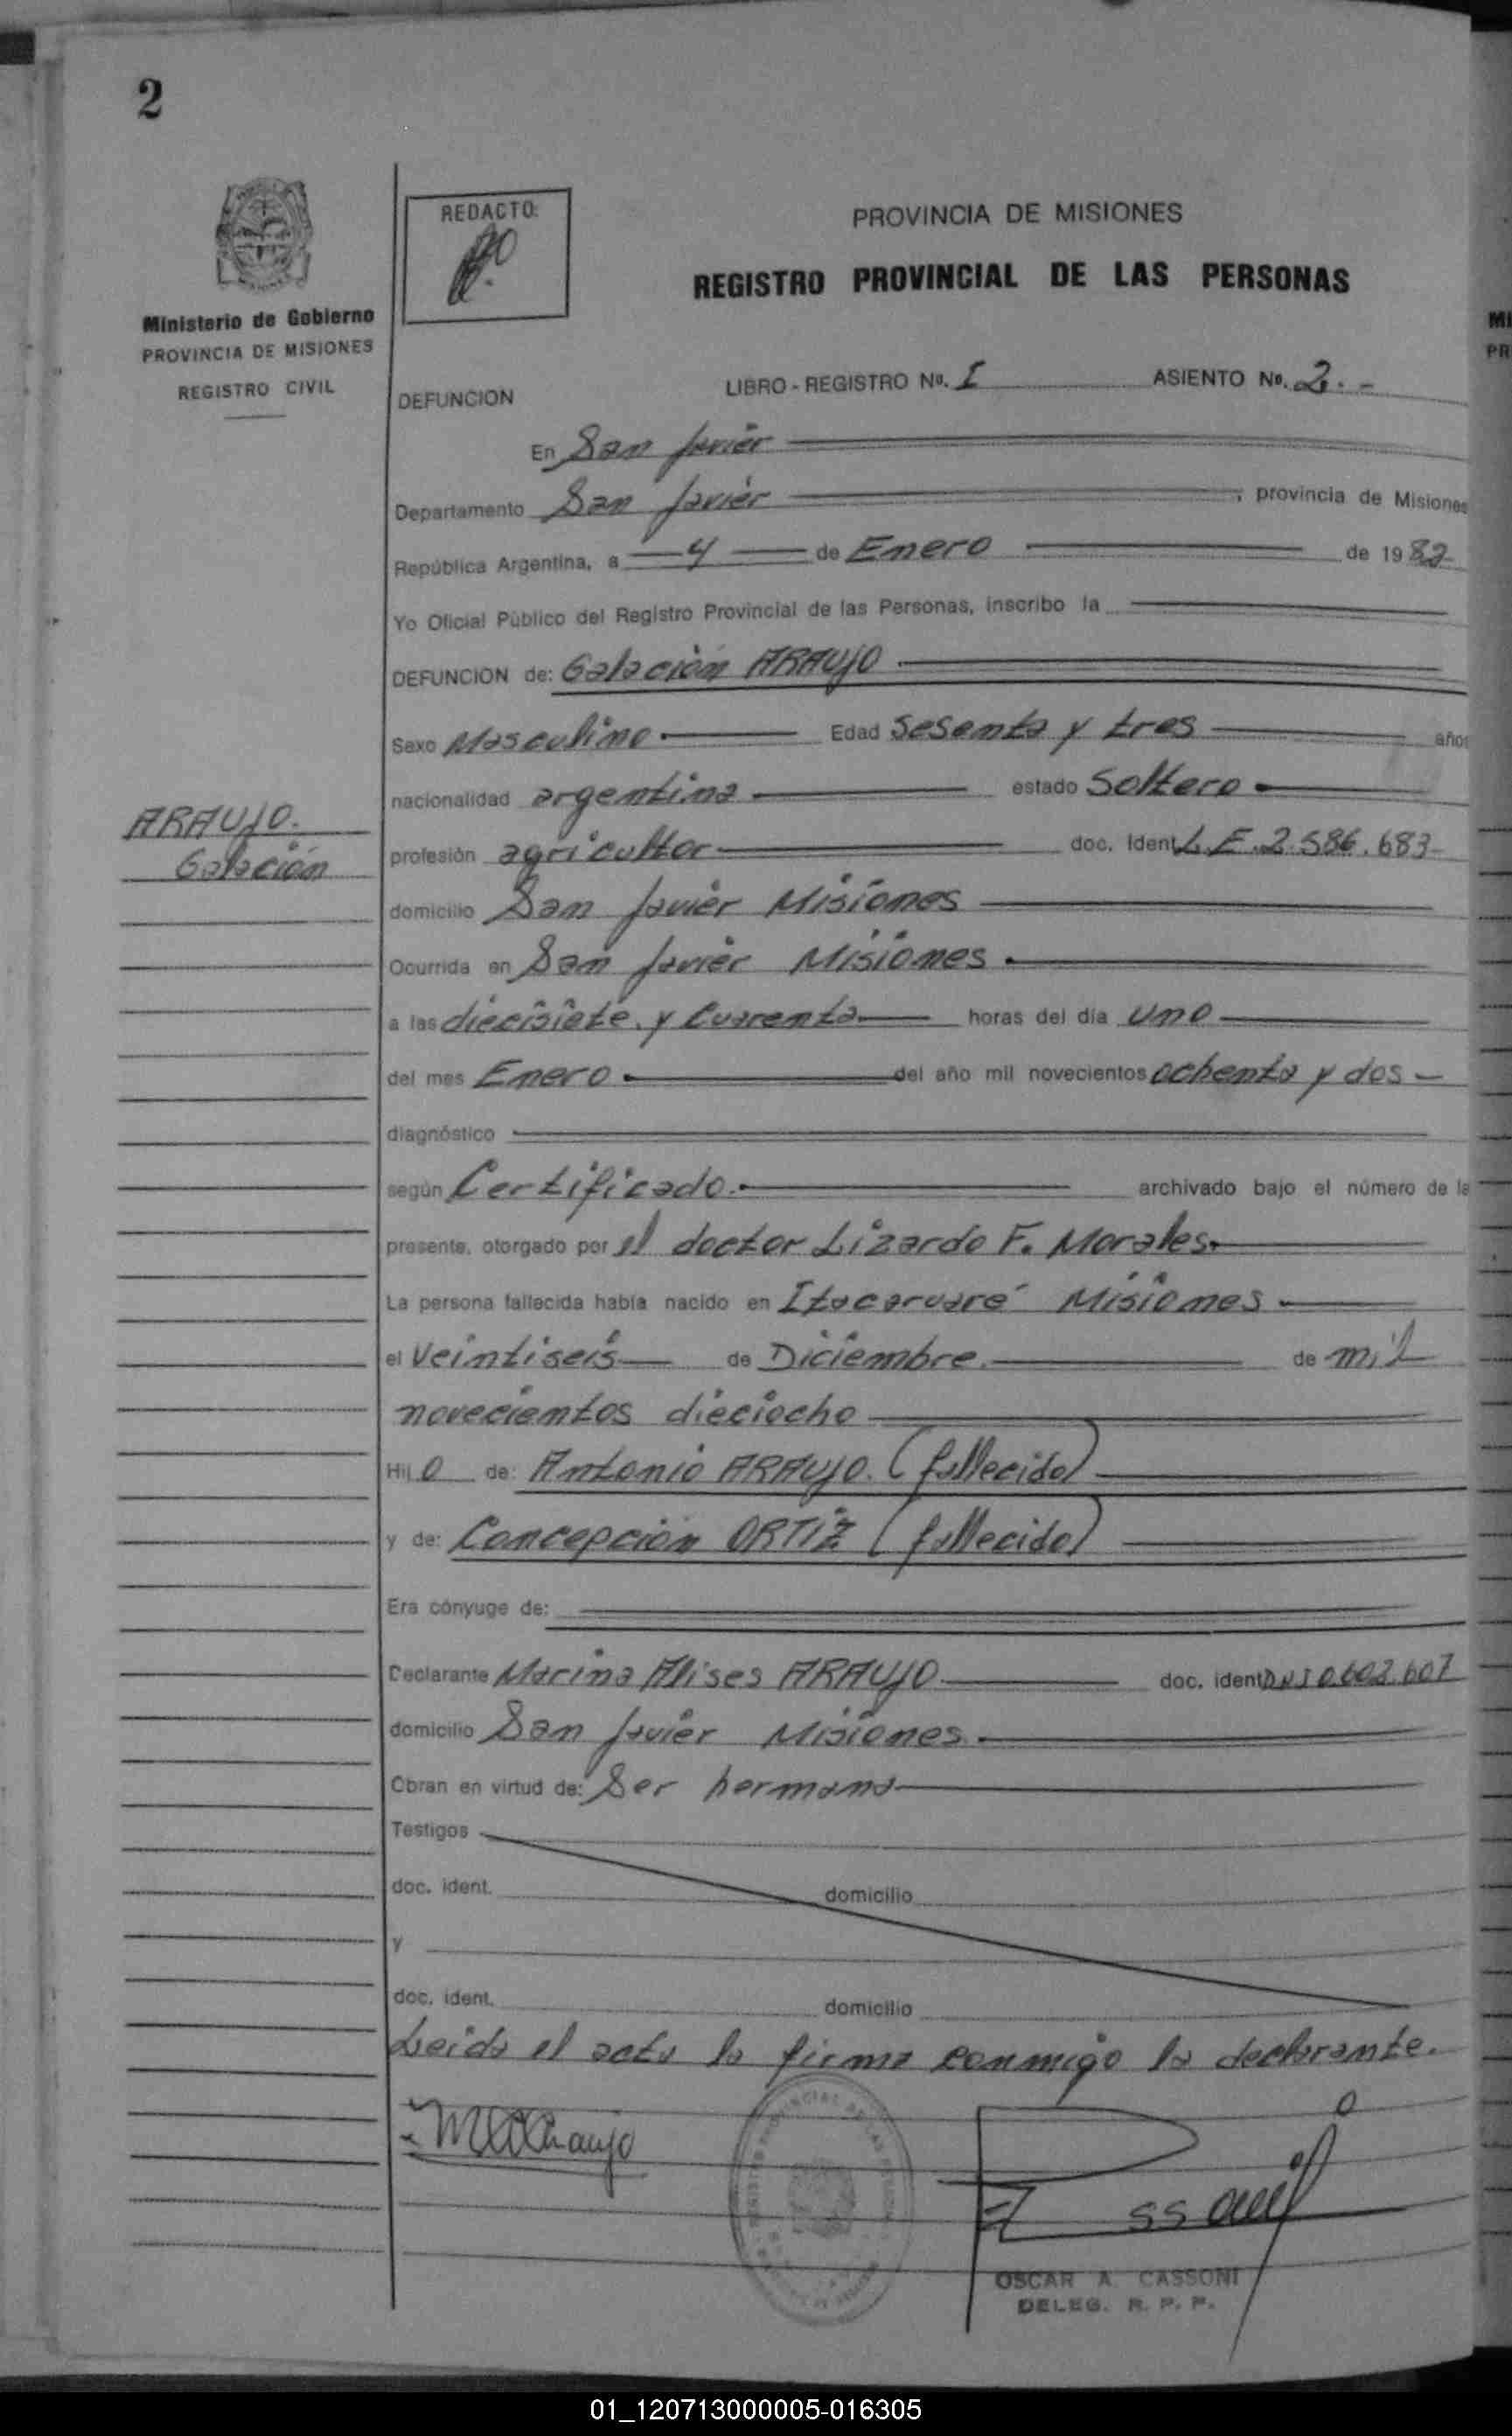 2
Ministerio de Gobierno
PROVINCIA DE MISIONES
REGISTRO CIVIL
REDACTO:
PROVINCIA DE MISIONES
REGISTRO PROVINCIAL DE LAS PERSONAS
DEFUNCION
LIBRO - REGISTRO No. I ASIENTO No. 2. -
En San Javier
Departamento San Javier , provincia de Misiones
República Argentina, a 4 de Enero de 1982
Yo Oficial Público del Registro Provincial de las Personas, inscribo la
DEFUNCION de: Galación ARAUJO
Sexo Masculino. Edad Sesenta y tres años
nacionalidad argentina estado Soltero
ARAUJO.
Galación
profesión agricultor doc. Ident L.E. 2.586.683
domicilio San Javier Misiones
Ocurrida en San Javier Misiones.
a las diecisiete y Cuarenta horas del día uno
del mes Enero. del año mil novecientos ochenta y dos
diagnóstico
según Certificado. archivado bajo el número de la
presente, otorgado por el doctor Lizardo F. Morales.
La persona fallecida había nacido en Itacaruaré Misiones
el Veintiseis de Diciembre. de mil
novecientos dieciocho
Hijo de: Antonio ARAUJO. (fallecido)
y de: Concepción ORTIZ (fallecido)
Era cónyuge de:
Declarante Marina Alises ARAUJO doc. ident
domicilio San Javier Misiones.
Obran en virtud de: Ser hermana
Testigos
doc. ident. domicilio
y
doc. ident. domicilio
Leida el acta la firma conmigo la declarante.
OSCAR A. CASSONI
DELEG. R. P. P.
01_120713000005-016305